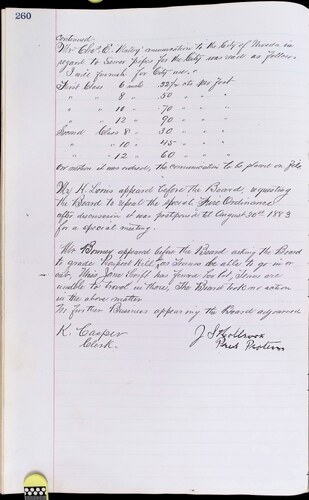 260
Continued
Mr Chas. E. communication to the City of in
regard to Sewer pipes for the City was read as follows.
I will furnish for City use.
First Class 6 inch cts per foot
" " 8 " 50 " "
" " 10 " 70 " "
" " 12 " 90 " "
Second Class 8 " 30 " "
" " 10 " 45 " "
" " 12 " 60 " "
On motion it was ordered, the communication to be placed on file
Mr H. Lyons appeared before the Board, requesting
the Board to repeal the special Ordinance
after discussion it was postponed till August 30th 1883
for a special meeting.
Mr Bonney appeared before the Board asking the Board
to grade Hill, as be able to go in or
out, This has
unable to travel in those, The Board took no action
in the above matter
No further Business appearing the Board adjourned
K. Casper
Clerk.
J S Holbrook
Pres Protem